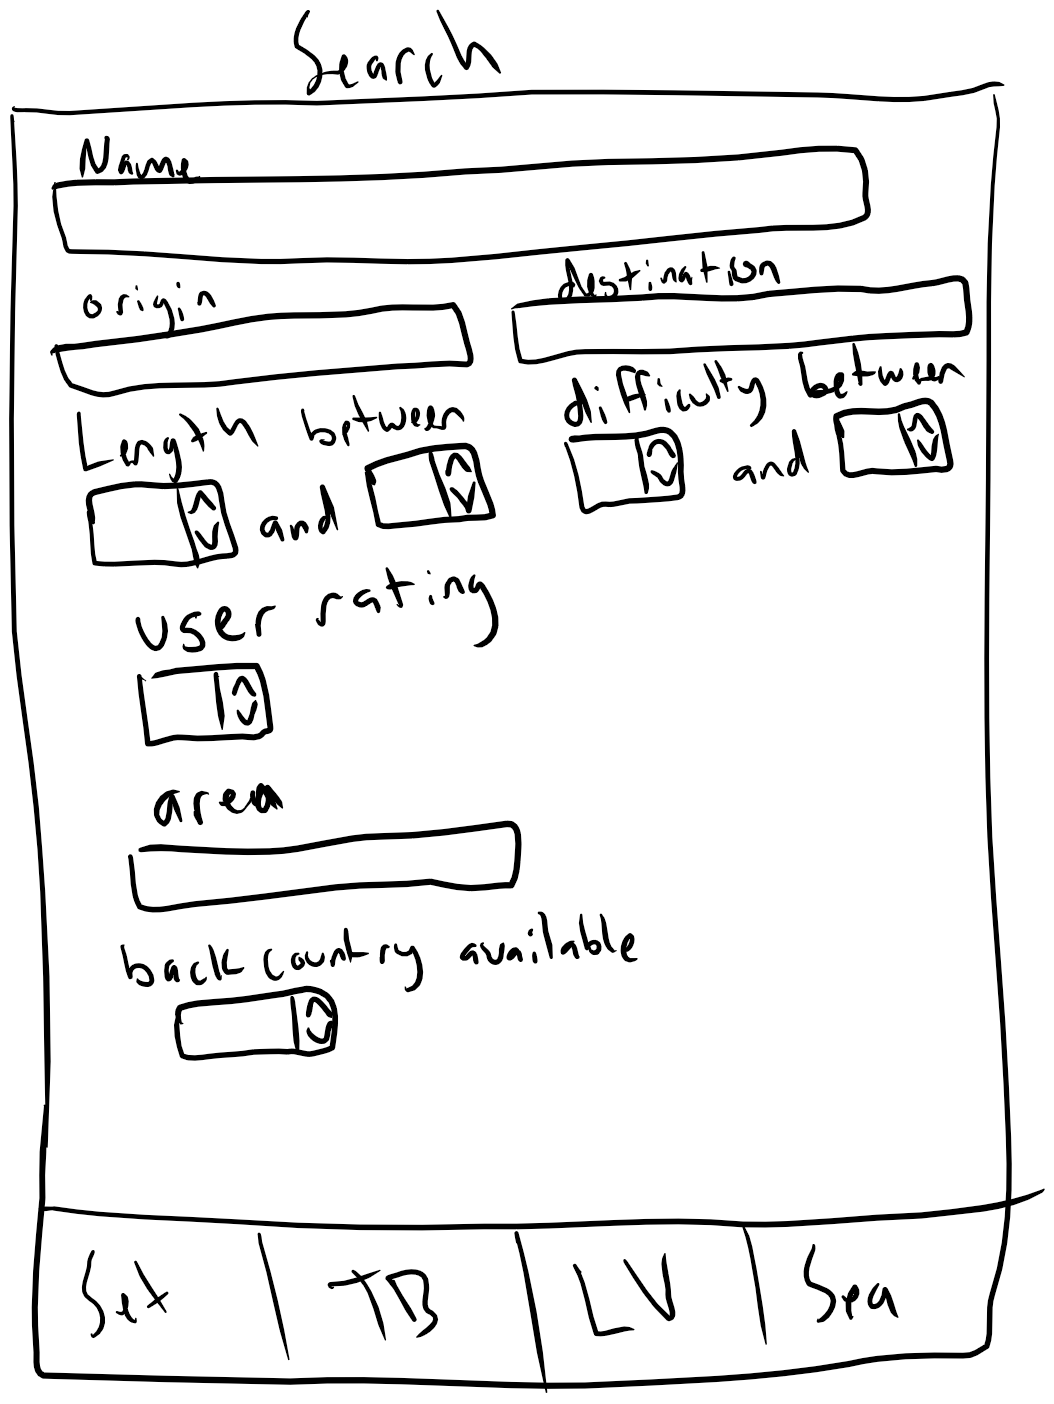 Search
Name
origin destination
Length between difficulty between
and and
user rating
area
back country available
Set TB LV Sea